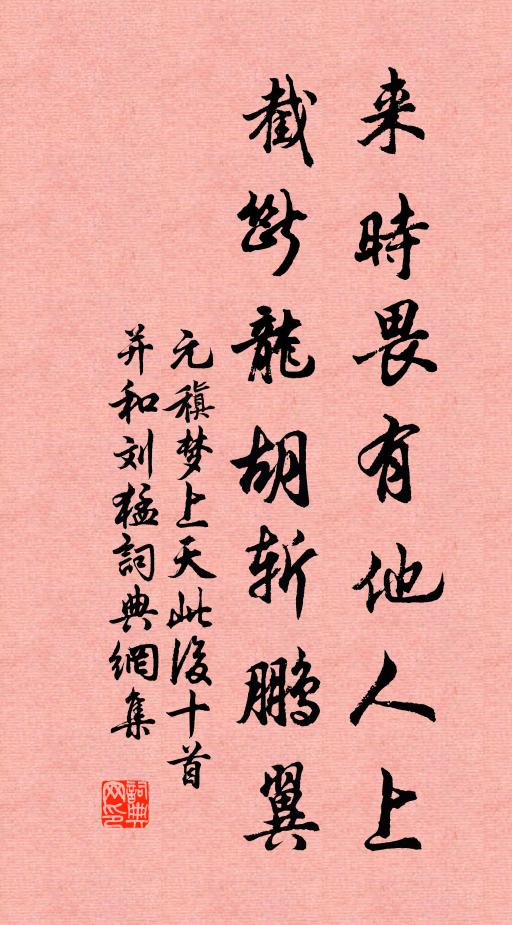 来時畏有他人上
截斷龍胡斬鵬翼
元稹梦上天此後十首
并和刘猛詞典網集
詞典网印